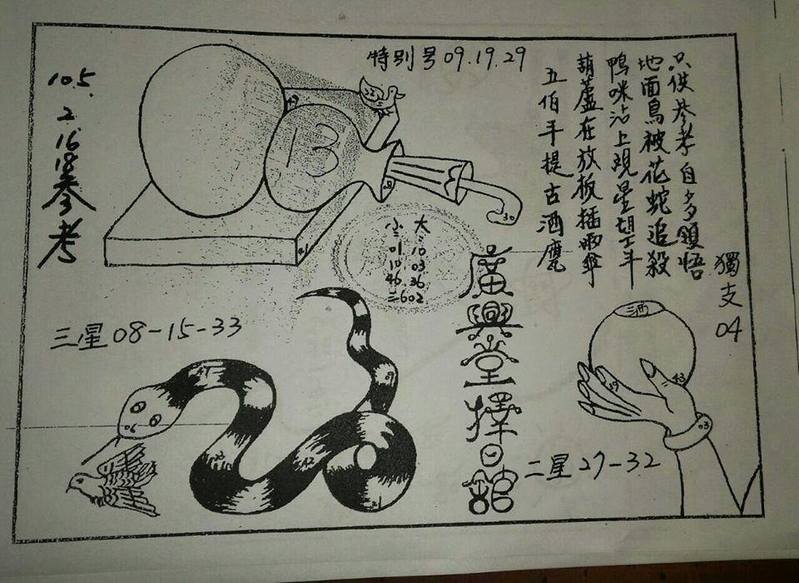 特别号09.19.29
只供參考自多領悟
地面鳥被花蛇追殺
鴨咪沾上現星
葫蘆在放板插雨傘
五佰手提古酒甕
105.
2.
16
18
參考
13
22
30
大:10 03 36 02
小:01 10 46
獨支04
三星08-15-33
廣興堂擇日館
酒
43
03
二星27-32